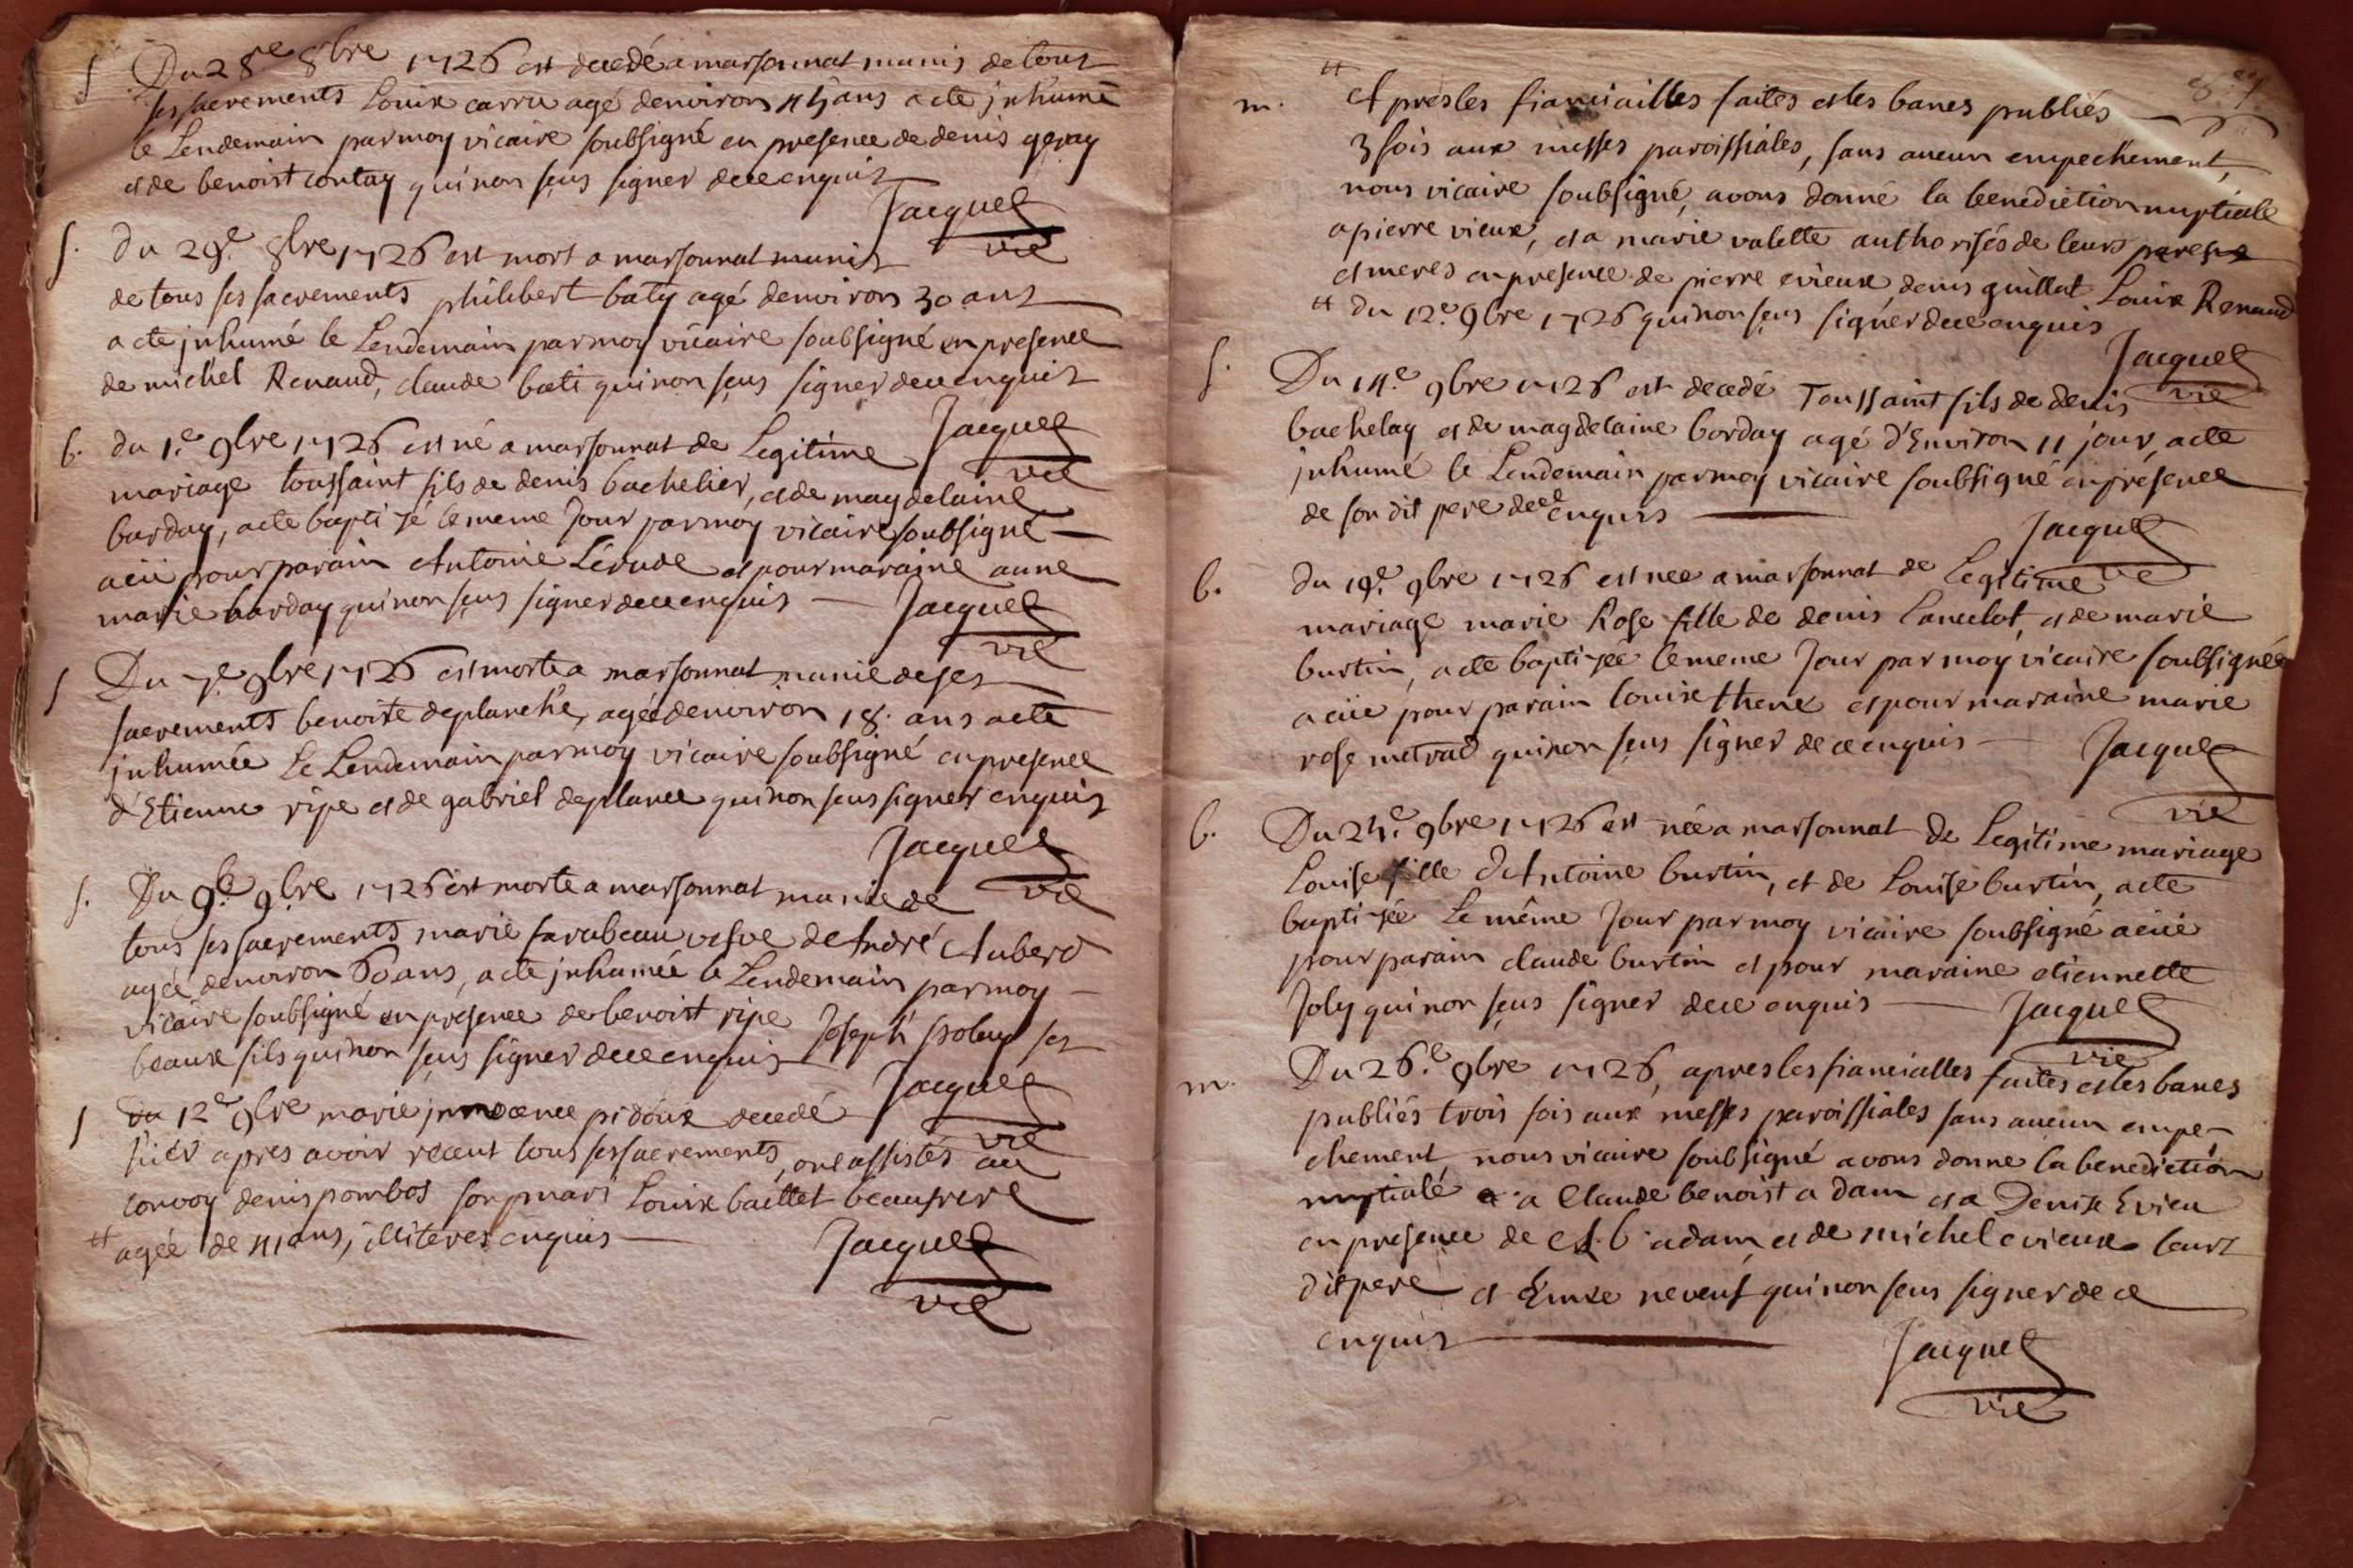 s Du 28e 8bre 1726 est decedé a marsonnat munis de tous
ses sacrements Louix carru agé denviron 45 ans a eté jnhumé
le Lendemain par moy vicaire soubsigné en presence de denis
et de benoist contay qui non sçus signer de ce enquis
Jacquet
vic
s. du 29.e 8bre 1726 est mort a marsonnat munis
de tous ses sacrements philibert baty agé denviron 30 ans
a eté jnhumé le Lendemain par moy vicaire soubsigné en presence
de michel Renaud, claude bati qui non sçus signer de ce enquis
Jacquet
vic
b. du 1.e 9bre 1726 est né a marsonnat de Legitime
mariage toussaint fils de denis bachelier, et de magdelaine
barday, a eté baptisé le meme Jour par moy vicaire soubsigné
a eü pour parain Antoine et pour maraine anne
marie barday qui non sçus signer de ce enquis
Jacquet
vic
s Du 7.e 9bre 1726 est morte a marsonnat munie de ses
sacrements benoite deplanche, agée denviron 18. ans a eté
jnhumée Le Lendemain par moy vicaire soubsigné en presence
d'Etienne ripe et de gabriel deplance qui non sçus signer enquis
Jacquet
vic
s. Du 9.e 9bre 1726 est morte a marsonnat munie de
tous ses sacrements marie farabeau vefve de André Auberd
agée denviron 60 ans, a eté jnhumée le Lendemain par moy
vicaire soubsigné en presence de benoist ripe Joseph ses
beaux fils qui non sçus signer de ce enquis
Jacquet
vic
s du 12e 9bre marie jnnocence pidoux decedé
hier apres avoir receut tous ses sacrements, ont assistés au
convoy denis pombos son mari Louix baillet beaufrere
# agée de 41 ans, illiteres enquis
Jacquet
vic
#
m. Apres les fianciailles faites et les banes publiés
3 fois aux messes paroissiales, sans aucun empechement,
nous vicaire soubsigné, avons donné la benediction nuptiale
a pierre vieux, et a marie valette authorisés de leurs peres
et meres en presence de pierre evieux, denis guillat Louix Renaud
# du 12.e 9bre 1726 qui non sçus signer de ce enquis
Jacquet
vic
s. Du 14.e 9bre 1726 est decedé Toussaint fils de denis
bachelay et de magdelaine barday agé d'Environ 11 jour, a eté
jnhumé le Lendemain par moy vicaire soubsigné en présence
de son dit pere de ce enquis
Jacquet
vic
b. du 19.e 9bre 1726 est née a marsonnat de Legitime
mariage marie Rose fille de denis Lancelot, et de marie
burtin, a eté baptisée le meme Jour par moy vicaire soubsigné
a eüe pour parain Louix thene et pour maraine marie
rose metrad qui non sçus signer de ce enquis
Jacquet
vic
b. Du 24.e 9bre 1726 est née a marsonnat de Legitime mariage
Louise fille d'Antoine burtin, et de Louise burtin, a eté
baptisée Le même Jour par moy vicaire soubsigné a eüe
pour parain claude burtin et pour maraine etiennette
Joly qui non sçus signer de ce enquis
Jacquet
vic
m. Du 26.e 9bre 1726, apres les fiancialles faites et les banes
publiés trois fois aux messes paroissiales sans aucun empe-
chement, nous vicaire soubsigné avons donne la benediction
nuptiale a Claude benoist adam et a Denise Evieu
en presence de Cl. b. adam, et de michel evieux leurs
dit pere et neveuf qui non sçus signer de ce
enquis
Jacquet
vic